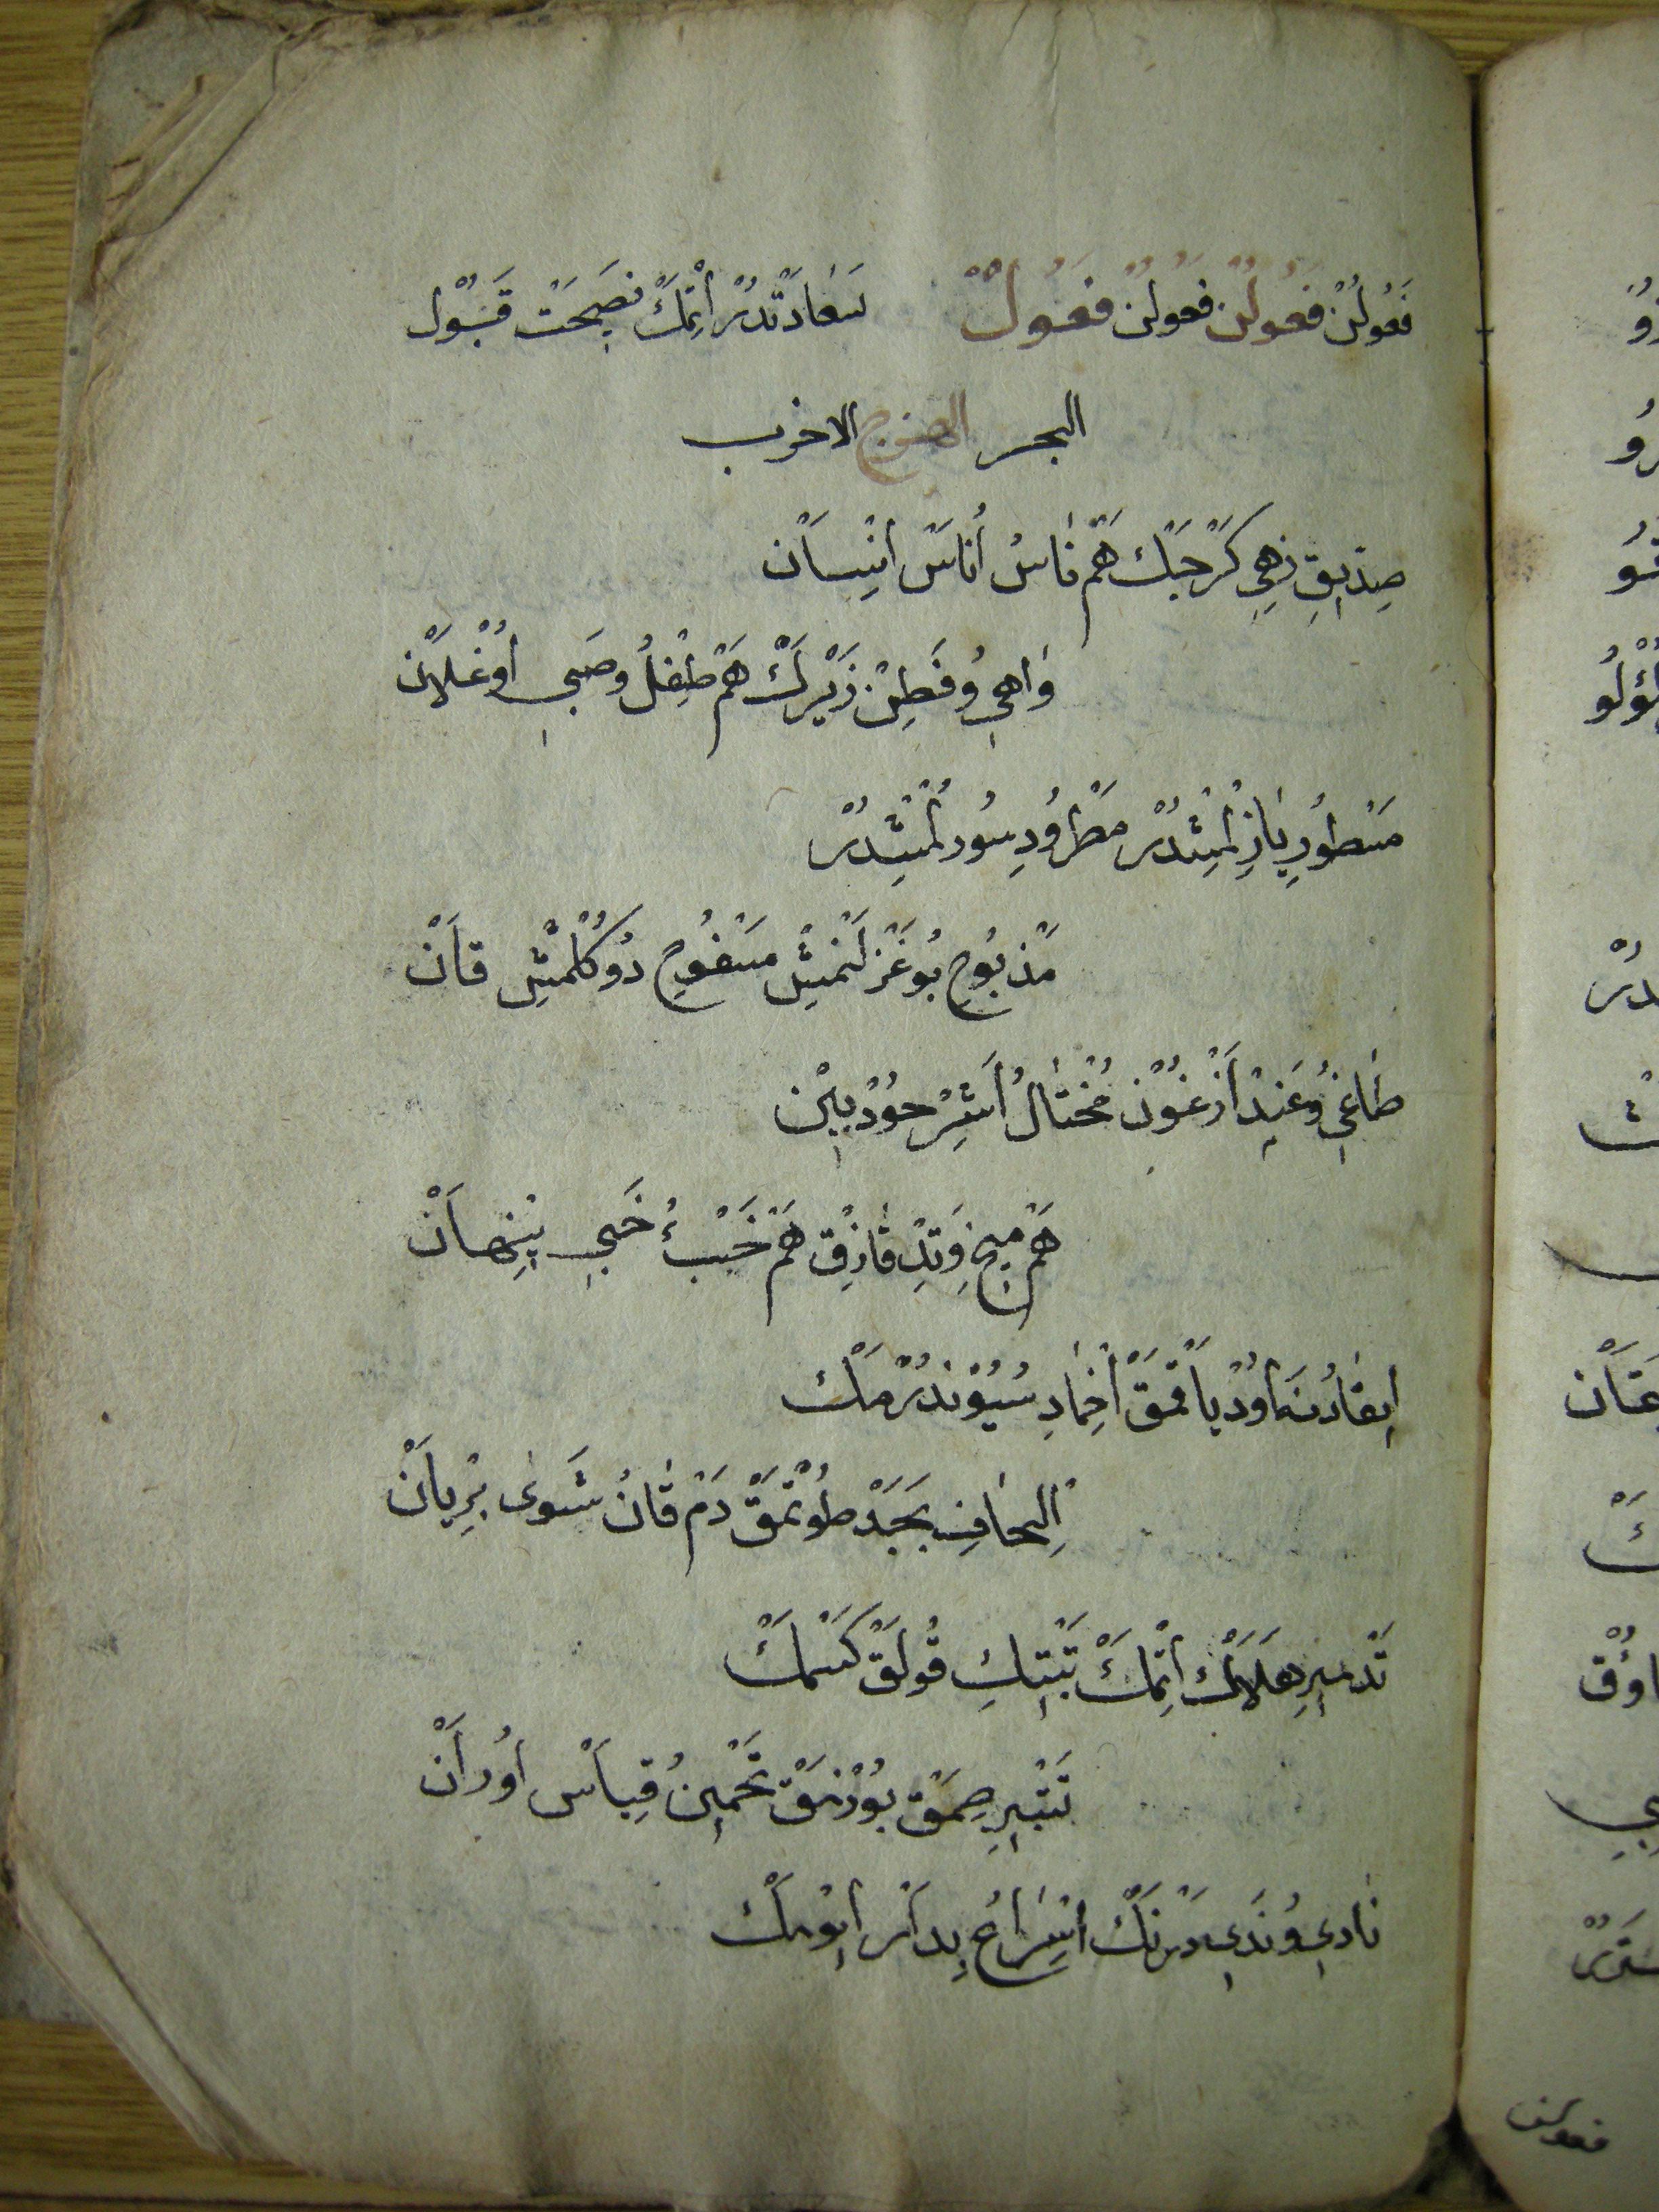 فَعُولُنْ فَعُولُنْ فَعُولُنْ فَعُولْ سَعَادَتْدُرْ اِتْمَكْ نَصِيحَتْ قَبُولْ
البحر الهزج الاخرب
صِدّيق زهى كَرْجَكْ هَمْ نَاسُ اُنَاسْ اِنْسَانْ
وَاهِى وُ فَطِنْ زَيْرَكْ هَمْ طِفْلُ وصَبى اُوغْلَانْ
مَسْطُورِ يَازِلْمِشْدُرْ مَطْرُودِ سُورُلْمِشْدُرْ
مَذْبُوحِ بُوغَزْلَنْمِشْ مَسْفُوحِ دُوكُلْمِشْ قَانْ
طَاغِى وُ عَنِيدْ اَزْغُونْ مُخْتَالُ اَشِرْ خُودْبِينْ
هَمْ مِيخِ وَتِدْ قَازِقْ هَمْ خَبْءُ خَبِى پِنْهَانْ
اِيقَادُ نَه اُودْ يَاقْمَقْ اِخْمَادِ سُيُونْدُرْمَكْ
اِلْحَافِ بَجَدْ طُوتْمَقْ دَمْ قَانُ شَوى بِرْيَانْ
تَدْمِيرِ هَلَاكْ اِتْمَكْ تَبْتِيكِ قُولَقْ كَسْمَكْ
تَتْبِيرِ صِمَقْ بُوزْمَقْ تَخْمِينُ قِيَاسْ اُورَانْ
نَادِى وُ نَدِى دَرْنَكْ اِسْرَاعُ بِدَارْ اِيومَكْ
فعولن